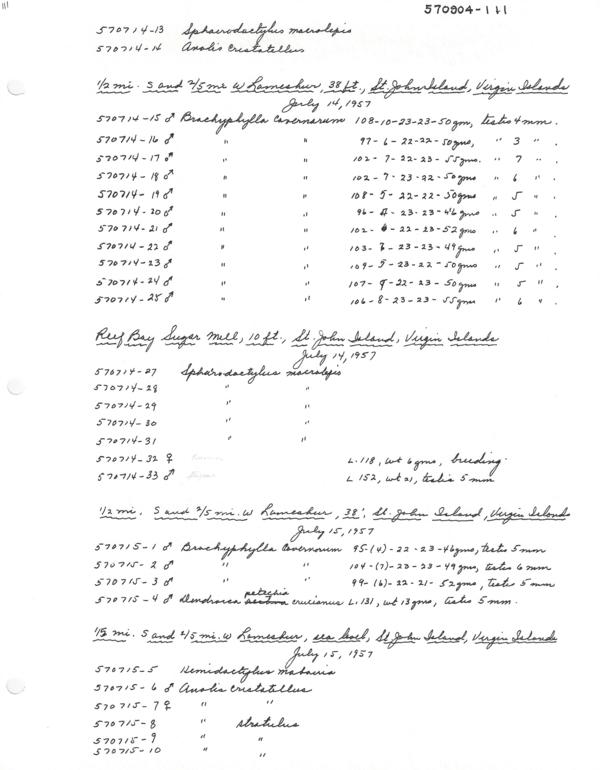 111
570904-111
570714-13 Sphaerodactylus macrolepis
570714-14 Anolis Cristatellus
1/2 mi. S and 2/5 mi W Lameshur, 38 ft., St. John Island, Virgin Islands
July 14, 1957
570714-15 ♂ Brachyphylla Cavernarum 108-10-23-23-50gm, testis 4 mm.
570714-16 ♂ " " 97-6-22-22-50gms, " 3 " .
570714-17 ♂ " " 102-7-22-23-55gms. " 7 " .
570714-18 ♂ " " 102-7-23-22-50gms " 6 " .
570714-19 ♂ " " 108-5-22-22-50gms " 5 " .
570714-20 ♂ " " 96-4-23-23-46gms " 5 " .
570714-21 ♂ " " 102-6-22-23-52gms " 6 " .
570714-22 ♂ " " 103-7-23-23-49gms " 5 " .
570714-23 ♂ " " 109-5-23-22-50gms " 5 " .
570714-24 ♂ " " 107-9-22-23-50gms " 5 " .
570714-25 ♂ " " 106-8-23-23-55gms " 6 " .
Reef Bay Sugar Mill, 10 ft., St. John Island, Virgin Islands
July 14, 1957
570714-27 Sphaerodactylus macrolepis
570714-28 " "
570714-29 " "
570714-30 " "
570714-31 " "
570714-32 ♀ L. 118, wt 6 gms, breeding.
570714-33 ♂ L 152, wt 21, testis 5 mm
1/2 mi. S and 2/5 mi. W Lameshur, 38', St. John Island, Virgin Islands
July 15, 1957
570715-1 ♂ Brachyphylla Cavernarum 95-(4)-22-23-46gms, testes 5 mm
570715-2 ♂ " " 104-(7)-23-23-49gms, testes 6 mm
570715-3 ♂ " " 99-(6)-22-21-52gms, testes 5 mm
petechia
570715-4 ♂ Dendroica crucianus L. 131, wt 13 gms, testes 5 mm.
mi. S and 2/5 mi. W Lameshur, sea level, St. John Island, Virgin Islands
July 15, 1957
570715-5 Hemidactylus mabouia
570715-6 ♂ Anolis cristatellus
570715-7 ♀ " "
570715-8 " stratulus
570715-9 " "
570715-10 " "